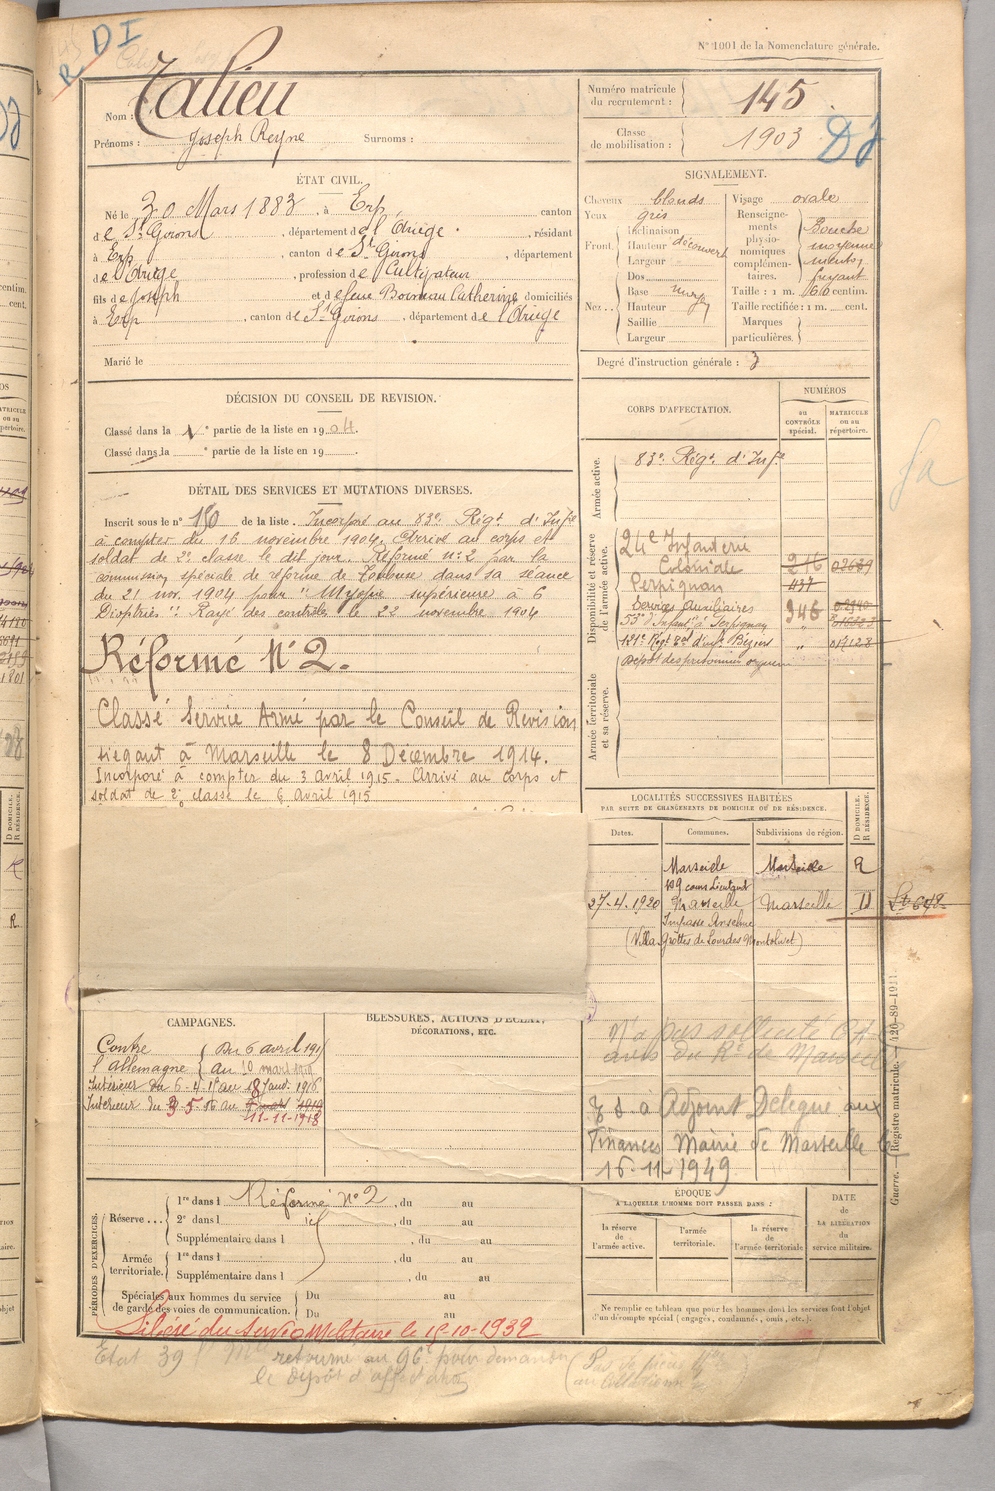 R DI
N° 1001 de la Nomenclature générale.
Nom : Calieu
Prénoms : Joseph Reyne Surnoms :
Numéro matricule du recrutement : 145
Classe de mobilisation : 1903
ÉTAT CIVIL.
Né le 30 Mars 1883, à Erp, canton
de St Girons, département de l'Ariège, résidant
à Erp, canton de St Girons, département
de l'Ariège, profession de Cultivateur
fils de Joseph et de feue Catherine domiciliés
à Erp, canton de St Girons, département de l'Ariège
Marié le
SIGNALEMENT.
Cheveux blonds
Yeux gris
Front. Inclinaison
Hauteur découvert
Largeur
Nez.. Dos
Base moy
Hauteur
Saillie
Largeur
Visage ovale
Renseignements physionomiques complémentaires. Bouche moyenne menton fuyant
Taille : 1 m. 66 centim.
Taille rectifiée : 1 m. cent.
Marques particulières.
Degré d'instruction générale : 3
DÉCISION DU CONSEIL DE REVISION.
Classé dans la 1e partie de la liste en 1904.
Classé dans la e partie de la liste en 19
DÉTAIL DES SERVICES ET MUTATIONS DIVERSES.
Inscrit sous le n° 150 de la liste. Incorporé au 83e Régt d'Infie
à compter du 16 novembre 1904. Arrivé au corps et
soldat de 2e classe le dit jour. Réformé n° 2 par la
commission spéciale de réforme de Toulouse dans sa séance
du 21 nov. 1904 pour "Myopie supérieure à 6
Dioptries". Rayé des contrôles le 22 novembre 1904
Réformé N° 2.
Classé Service Armé par le Conseil de Revision
siégant à Marseille le 8 Décembre 1914.
Incorporé à compter du 3 Avril 1915. Arrivé au corps et
soldat de 2e classe le 6 Avril 1915
CORPS D'AFFECTATION.
NUMÉROS
au CONTRÔLE spécial.
MATRICULE ou au répertoire.
Armée active.
83e Régt d'Inf.
Disponibilité et réserve de l'armée active.
24e Infanterie
Coloniale 216
Perpignan 437
Services Auxiliaires 946
53e d'Infant. à Perpignan
121e Régt d'inf. Béziers " 019128
Dépôt des prisonniers
Armée territoriale et sa réserve.
LOCALITÉS SUCCESSIVES HABITÉES
PAR SUITE DE CHANGEMENTS DE DOMICILE OU DE RÉSIDENCE.
Dates. Communes. Subdivisions de région. D DOMICILE. R RÉSIDENCE.
Marseille Marseille R
109 cours Lieutaud
27-4-1920 Marseille Marseille D
Impasse Anselme
(Villa Grottes de Lourdes Montolivet)
N'a pas sollicité
avis du Rt de Marseille
Adjoint Délégué aux
Finances Mairie de Marseille le
16-11-1949
CAMPAGNES.
Contre l'Allemagne Du 6 avril 1915
au 10 mars 1919
Intérieur du 6-4-15 au 18 Janv. 1916
Intérieur du 3-5-16 au mars 1919
11-11-1918
BLESSURES, ACTIONS D'ÉCLAT,
DÉCORATIONS, ETC.
PÉRIODES D'EXERCICES.
Réserve... 1re dans l Réformé N° 2, du au
2e dans l , du au
Supplémentaire dans l , du au
Armée territoriale. 1re dans l , du au
Supplémentaire dans l , du au
Spéciales aux hommes du service de garde des voies de communication. Du au
Du au
Libéré du service Militaire le 15-10-1932
ÉPOQUE
À LAQUELLE L'HOMME DOIT PASSER DANS :
la réserve de l'armée active. l'armée territoriale. la réserve de l'armée territoriale
DATE de LA LIBÉRATION du service militaire.
Ne remplir ce tableau que pour les hommes dont les services font l'objet
d'un décompte spécial (engagés, condamnés, omis, etc.).
Guerre. — Registre matricule. — 420-89-1911.
Etat 39 retourné au 96e pour demander
le dépôt d'affectation